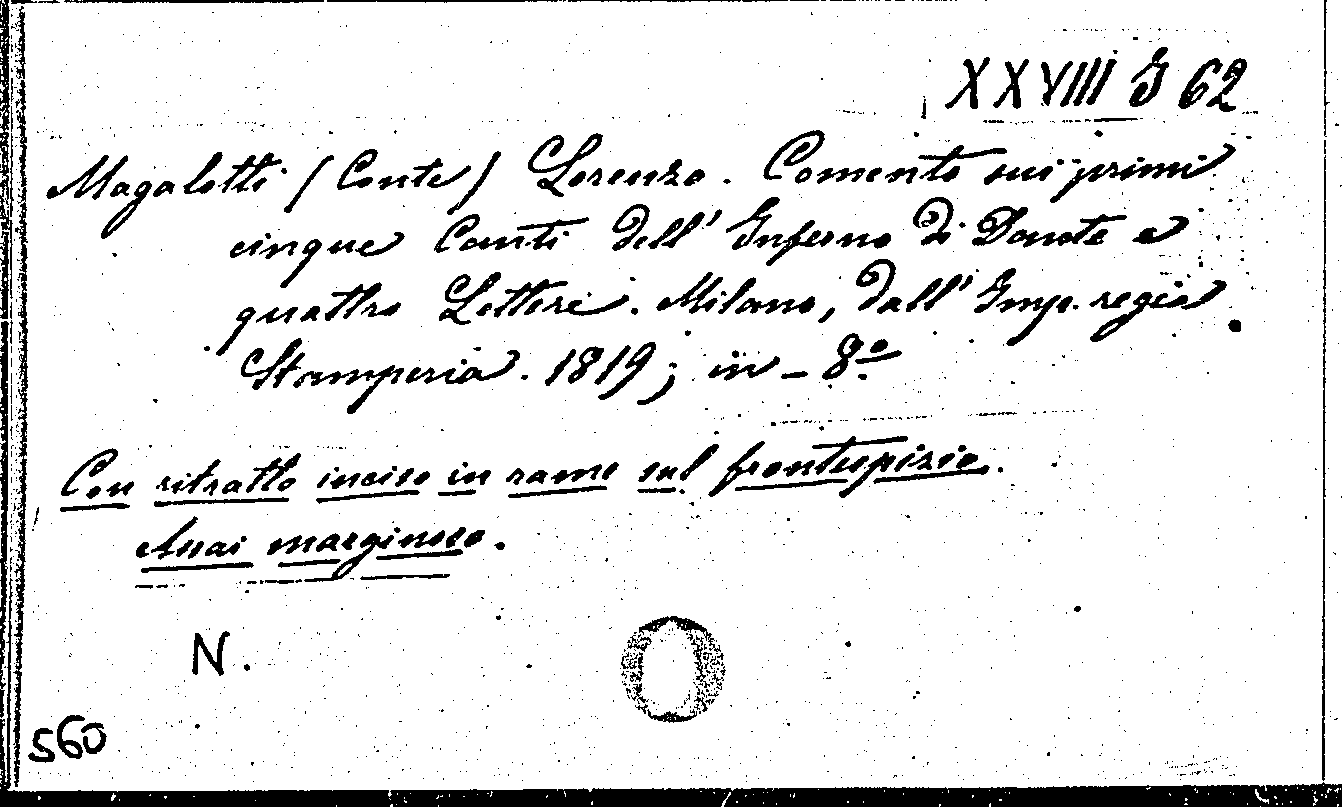 XXVIII J 62
Magalotti (Conte) Lorenzo. Comento sui primi
cinque Canti dell'Inferno di Dante e
quattro Lettere. Milano, dall'Imp. regia
Stamperia. 1819; in-8º
Con ritratto inciso in rame sul frontespizio.
Assai marginoso.
N.
560